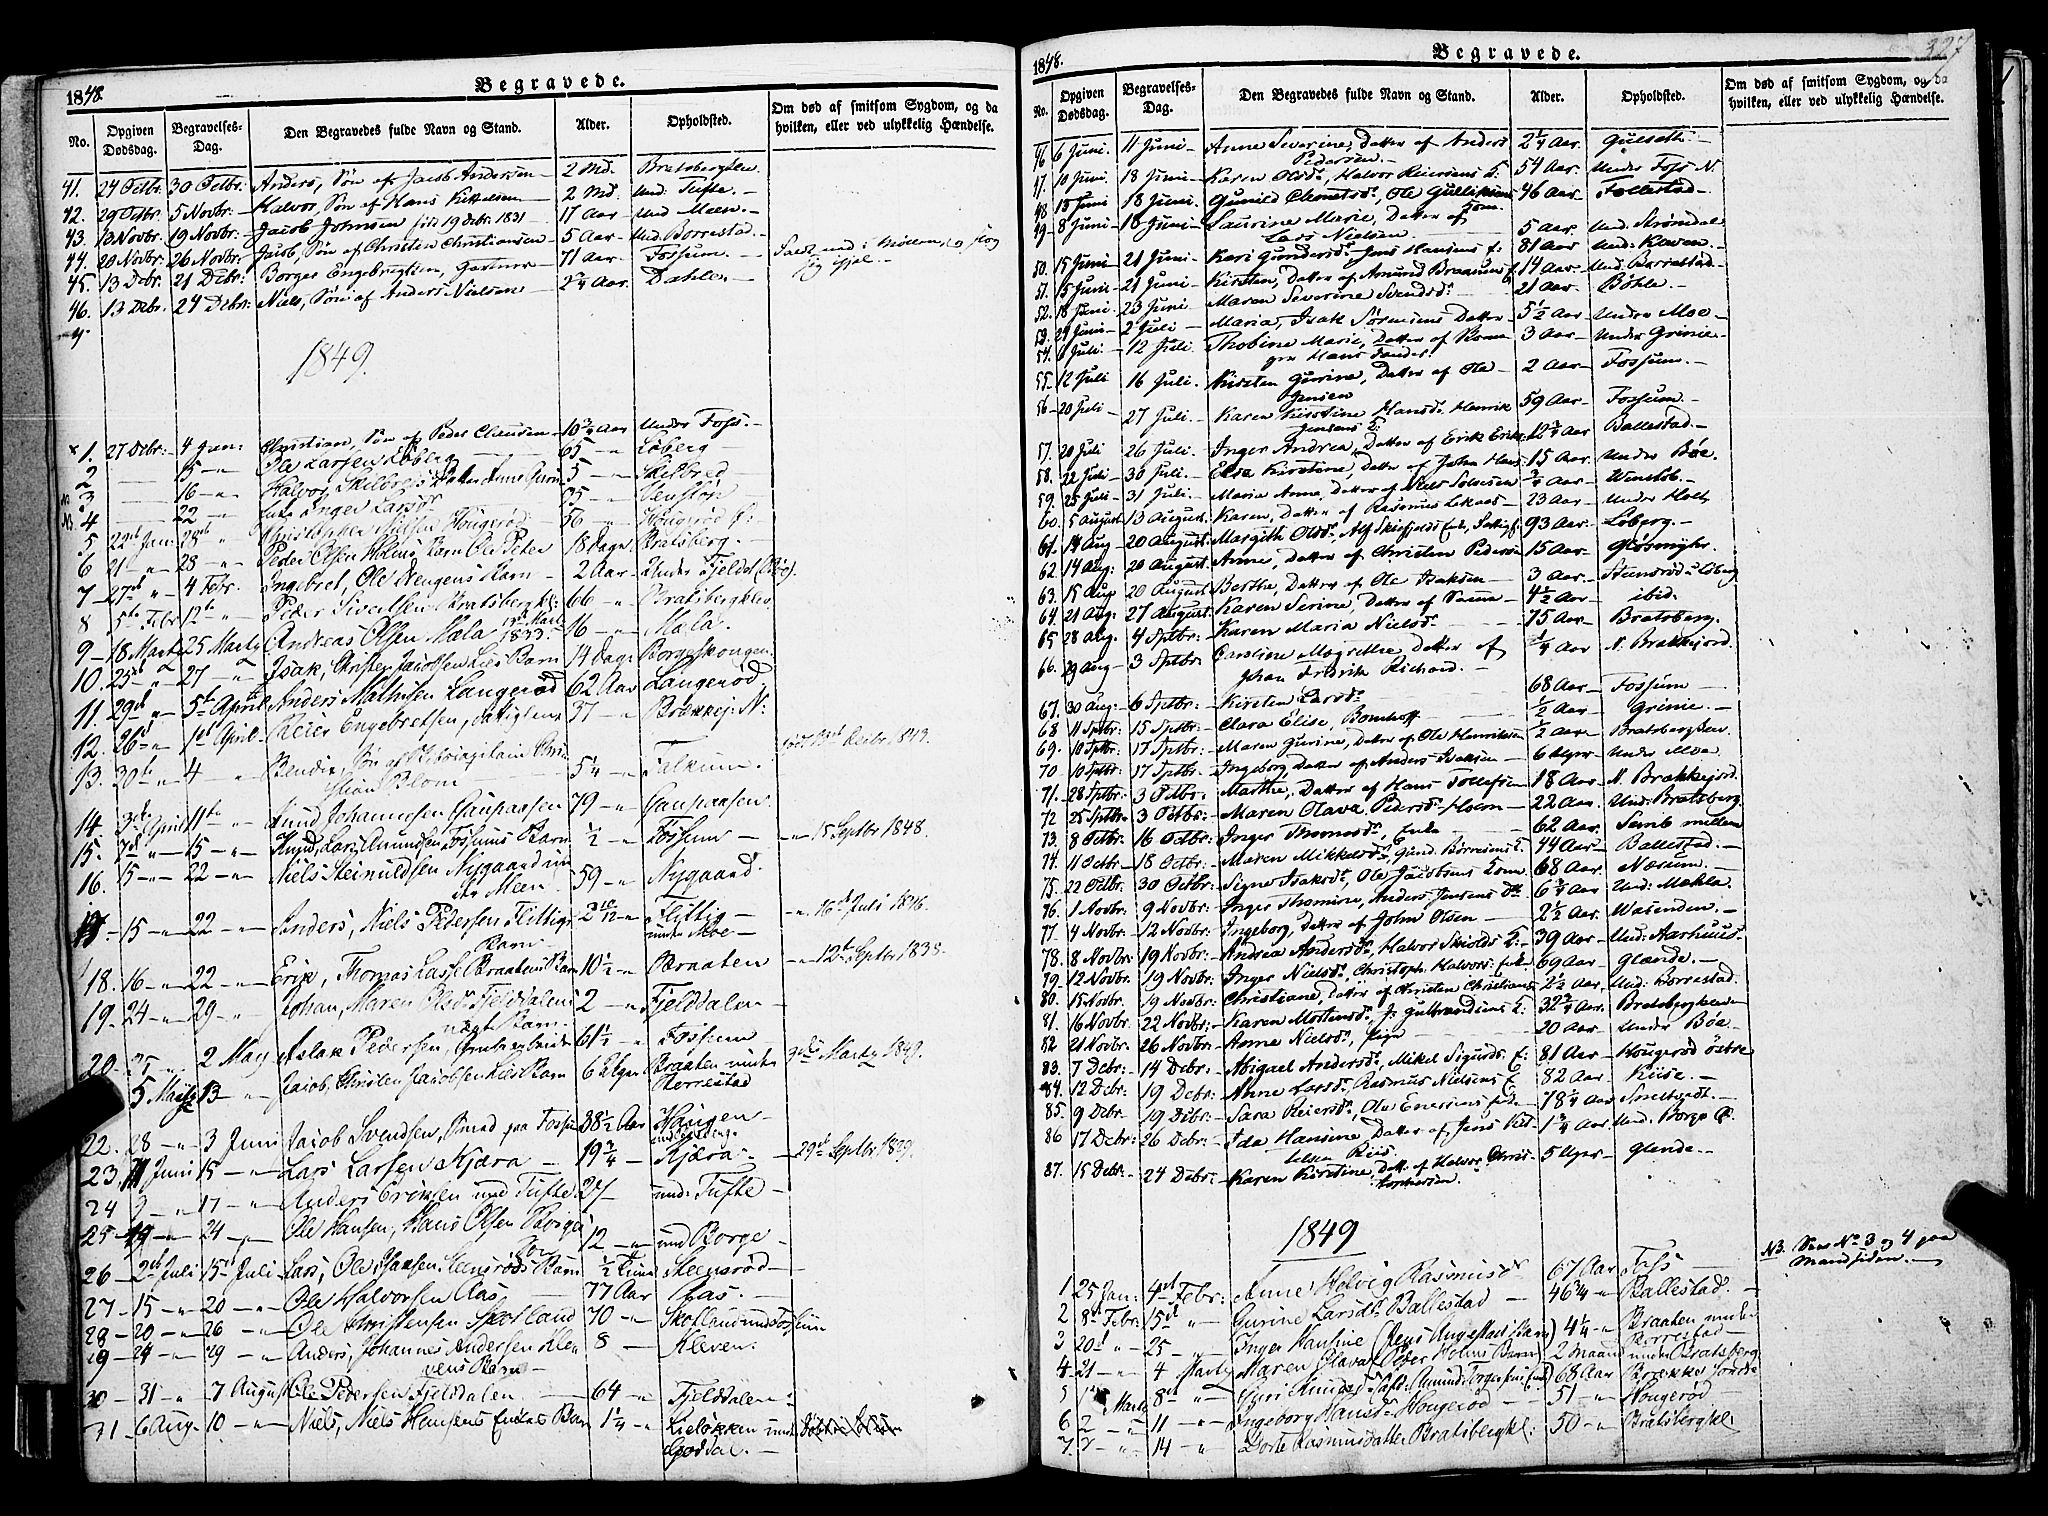 1848.
Begravede.
No. Opgiven Dødsdag. Begravelses-Dag. Den Begravedes fulde Navn og Stand. Alder. Opholdsted. Om død af smitsom Sygdom, og da hvilken, eller ved ulykkelig Hændelse.
41. 24 Octbr. 30 Octbr: Anders, Søn af Jacob Andersen 2 Md. Bratsbergklev
42. 29 Octbr. 5 Novbr: Halvor, Søn af Hans Kittelsen 2 Md. Und. Tufte.
43. 13 Novbr. 19 Novbr: Jacob Johnsen født 19 Debr. 1831 17 Aar Und Moen.
44. 20 Novbr. 26 Novbr: Jacob, Søn af Christen Christiansen 5 Aar Und. Borrestad
45. 13 Debr. 21 Debr: Borger Engebrigtsen, Gartner 71 Aar Fossum.
46. 13 Debr. 24 Debr: Niels, Søn af Anders Nielsen 2¼ Aar. Dahlen
1849.
1. 27 Debr: 4 Jan: Christian, Søn af Peder Clausen 10¾ Aar Under Foss.
2 15 Ole Larsen Løberg 65 Løberg
3 16 Halvor Skilbreds Datter Anne 5 Skilbred
4 22 Inger Larsd. 35 Venstøp
5 22 Jan: 28 Christopher Hougerød 56 Hougerød
6 21 28 Peder Olsen Holms Barn Ole Peter 18 Dage Bratsberg.
7 27 4 Febr. Ingebret, Ole Barn 2 Aar Under Fjeldal
8 5te Febr 12te Peder Sivertsen Bratsbergkl: 66 Bratsbergklev
9 18 Marts 25 Marty Andreas Olsen Mæla 1833 16 Mæla
10. 25 27 Isak, Christen Jacobsen Lies Barn 14 Dage Borgeskougen
11. 29 5t April Anders Mathisen Langerød 62 Aar Langerød
12. 26 1st April Reier Engebretsen, Fattiglem 37 Brækkej: N:
13. 30te 4 Bendix, Søn af Christian Blom 5¼ Falkum. født Decbr. 1843.
14. 3de April 11te Amund Johannesen Gaupaasen 79 Gaupaasen
15. 7d 15 Knud, Lars Amundsen Fossums Barn ½ Fossum 15 Septbr 1848.
16. 15 22 Niels Steinuldsen Nygaard under Meen 59 Nygaard.
17 15 22 Anders, Niels Pedersen Flittigs Barn 2 10/12 Flittig under Moe 16d Juli 1846.
18. 16 22 Erik, Thomas Lasse Braatens Barn 10½ Braaten 12t Septbr 1838.
19. 24 29 Johan, Maren Olsd. Fjelddalens uægt Barn. 2 Fjelddalen
20. 25 2 May Aslak Pedersen, Grubearbeider 61½ Fossum
5 Marty 13 Jacob, Christen Jacobsen Lies Barn 6 Uger Braaten under Borrestad Marty 1849.
22. 28 3 Juni Jacob Svendsen, Smed paa Fossum 38½ Aar Haugen
23. 11 Juni 15 Lars Larsen Kjæra 19¾ Kjæra 29 Septbr 1829.
24 9 17 Anders Eriksen und Tufte 27 und: Tufte
25 19 24 Ole Hansen, Hans Olsen Søn 12 und Borge
26 2d Juli 15 Juli Lars, Ole Hansen Steensrøds Barn ½ Time Steensrød
27 15 20 Ole Halvorsen Aas 77 Aar Aas.
28 20 26 Ole Christensen Skotland 70 Skotland und Fossum
29 24 29 Anders, Johannes Andersen Klevens Barn 8 Kleven.
30 31 7 August Ole Pedersen Fjelddalen 64 Fjelddalen
31 6 Aug. 10 Niels, Niels Hansens Barn 1¼ under Goddal.
1848.
Begravede.
327
No. Opgiven Dødsdag. Begravelses-Dag. Den Begravedes fulde Navn og Stand. Alder. Opholdsted. Om død af smitsom Sygdom, og da hvilken, eller ved ulykkelig Hændelse.
46 6 Juni. 11 Juni Anne Severine, Datter af Anders Pedersen 2¼ Aar. Gulseth
47. 10 Juni. 18 Juni Karen Olsd., Halvor Reiersens E: 54 Aar. Under Foss N.
48 13 Juni 18 Juni. Gunild Clemetsd., Ole Gulliksens Kone. 46 Aar Follestad
49 8 Juni 18 Juni Laurine Marie, Datter af Lars Nielsen 5 Aar. Und. Strømdal
50. 15 Juni 21 Juni Kari Gundersd. Jens Hansens E: 81 Aar Und: Kleven.
51. 15 Juni 21 Juni Kirsten, Datter af Amund 14 Aar. Und. Borrestad.
52. 18 Juni 23 Juni. Maren Severine Svendsd. 21 Aar. Bøhle.
53. 29 Juni 2 Juli Maria, Isak Sørensens Datter 5½ Aar Under Moe
54. 6 Juli 12 Juli. Thobine Marie, Datter af 3 Aar Under Grinie
55. 12 Juli 16 Juli. Kirsten Gurine, Datter af Ole Jensen 2 Aar Fossum.
56 20 Juli 27 Juli. Karen Kirstine Hansd. Henrik Jensens E: 59 Aar Fossum.
57. 20 Juli 26 Juli. Inger Andrea, Datter af Erik Eriks: 12¾ Aar Ballestad.
58. 22 Juli 30 Juli. Elsa Kirstine, Datter af John Hans: 15 Aar. Under Bøe.
59. 25 Juli 31 Juli. Maria Anne, Datter af Niels ¾ Aar Venstøb.
60. 5 August 13 August. Karen, Datter af Rasmus 23 Aar Under Holt
61. 14 Aug 20 August Margith Olsd., Alf Enke, 93 Aar. Løberg.
62. 14 Aug: 20 August. Anne, Datter af Christen Pedersen 15 Aar. Grosmyhr.
63. 15 Aug 20 August Berthe, Datter af Ole Isaksen 3 Aar Steensrød u Løberg
64. 21 Aug: 27 August. Karen Serine, Datter af Samme 4½ Aar ibid.
65 28 Aug. 4 Sptbr: Karen Maria Nielsd. 75 Aar Bratsberg.
66. 29 Aug 3 Sptbr. Caroline Magrethe, Datter af Johan Fredrik Richard. ¼ Aar N. Brækkejord
67. 30 Aug: 6 Sptbr: Kirsten Larsd. 68 Aar Fossum
68 11 Sptbr: 15 Sptbr: Clara Elise, Bomhoff ½ Aar Grinie
69. 10 Sptbr: 17 Sptbr: Maren Gurine, Datter af Ole Henriksen ½ Aar Bratsbergklev
70 10 Sptbr: 17 Sptbr: Ingeborg, Datter af Anders Isaksen 6 Uger Under Moe
71. 28 Sptbr: 3 Octbr: Marthe, Datter af Hans Tollefsen 18 Aar N. Brækkejord.
72 25 Sptbr. 3 Octbr: Maren Olava Pedersd. Holm 22 Aar. Und: Bratsberg.
73. 8 Octbr: 16 Octbr: Inger Thomasd., Enke 62 Aar. Semb mellem
74. 11 Octbr 18 Octbr: Maren Mikkelsd., Gund. Børresens E: 44 Aar Ballestad.
75. 22 Octbr. 30 Octbr: Signe Isaksd., Ole Jacobsens Kone. 68 Aar Næsum.
76. 1 Novbr: 9 Novbr: Inger Thomine, Anders Jensens D: 6¾ Aar Und: Mæhla
77. 4 Novbr. 12 Novbr: Ingeborg, Datter af John Olsen 2½ Aar. Wasenden.
78. 8 Novbr. 19 Novbr: Andrea Andersd., Halvor E: 39 Aar Und: Aarhuus
79. 12 Novbr. 19 Novbr: Inger Nielsd., Christoph. Halvors: Enke 69 Aar Glænde.
80. 15 Novbr. 19 Novbr: Christiane, Datter af Christen Christians: 2½ Aar. Und: Borrestad
81. 16 Novbr. 22 Novbr: Karen Mortensd., E: 32¾ Aar Bratsbergkleven
82 21 Novbr: 26 Novbr: Anne Nielsd., Pige 20 Aar Under Bøe
83. 7 Debr: 14 Debr: Abigael Andersd., Mikel Sigurds. E: 81 Aar Hougerød østre
84. 12 Debr: 19 Debr: Anne Larsd., Rasmus Nielsens E: 82 Aar Kiise.
85. 9 Debr. 19 Debr: Sara Reiersd., Ole Enersens Enke. 78¼ Aar
86 17 Debr: 26 Debr: Ida Hansine, Datter af Jens 1¾ Aar Und. Borge Ø:
87. 15 Debr: 24 Debr: Karen Kirstine, Dtt. af Halvor Christophersen. 5 Uger Glende.
1849
N3. Sees No 3 og 4 paa Mandsiden.
1 25 Jan: 4st Febr: Anne Helvig Rasmusd. 67 Aar Foss
2 8d Febr: 15d Gurine Larsd. Ballestad 46¾ Ballestad.
3 20d 25 Inger Pauline 4¼ Braaten under Borrestad
4 21 4 Marty Maren Olava (Peder Holms Barn) 2 Maaned under Bratsberg
5 1 Marts 8d Guri Knudsd. 68 Aar Brække Søndre
6 2 11 Ingeborg Hansd. Hougerød 51 Hougerød
7. 7 14 Dorte Rasmusdatter Bratsbergkl: 50 Bratsbergkl